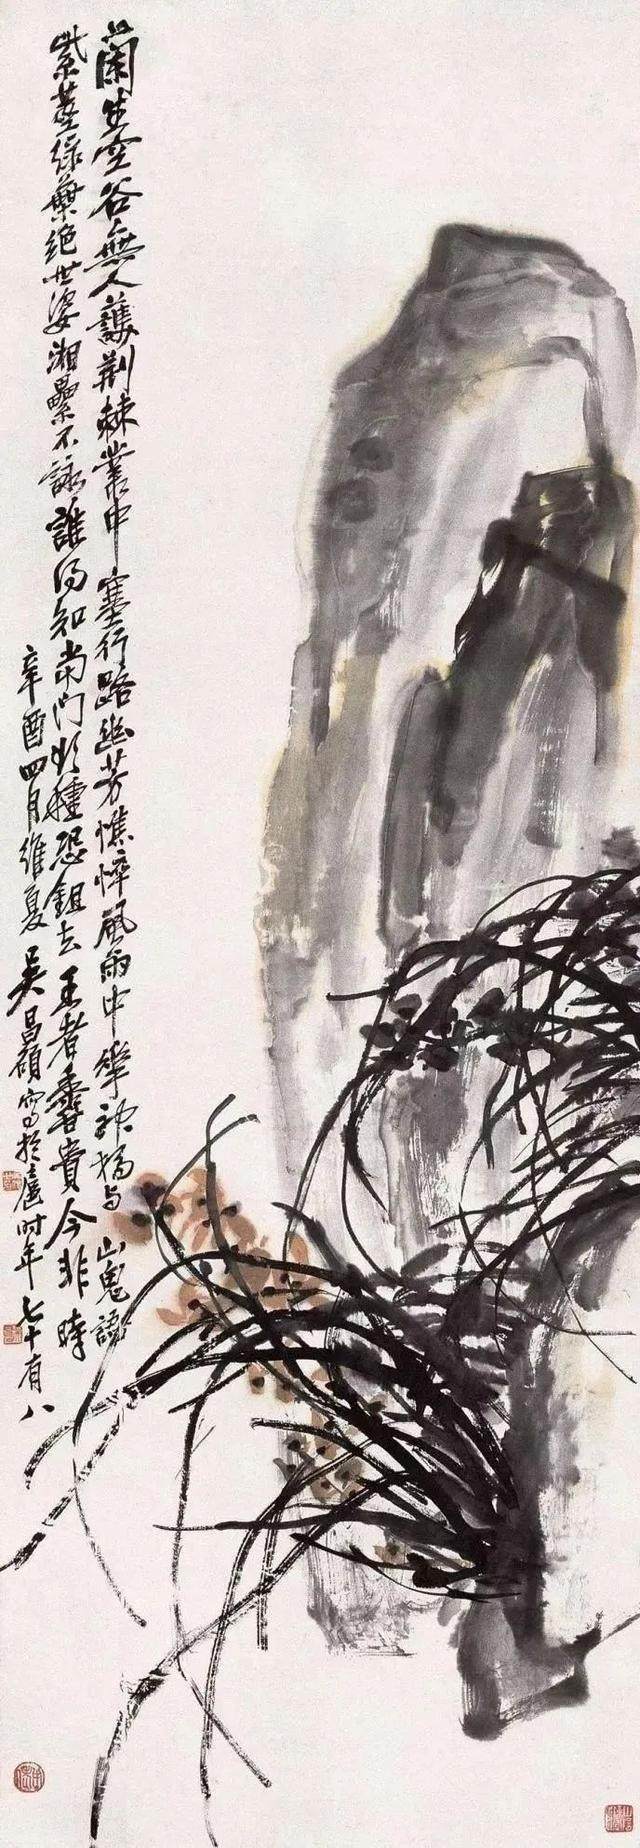 蘭生空谷無人護荆棘叢中塞行路幽芳憔悴風雨中花神獨与山鬼語
紫莖綠葉絕世姿湘纍不詠誰得知當門欲種恐鉏去王者香貴今非時
辛酉四月維夏吳昌碩寫於滬時年七十有八